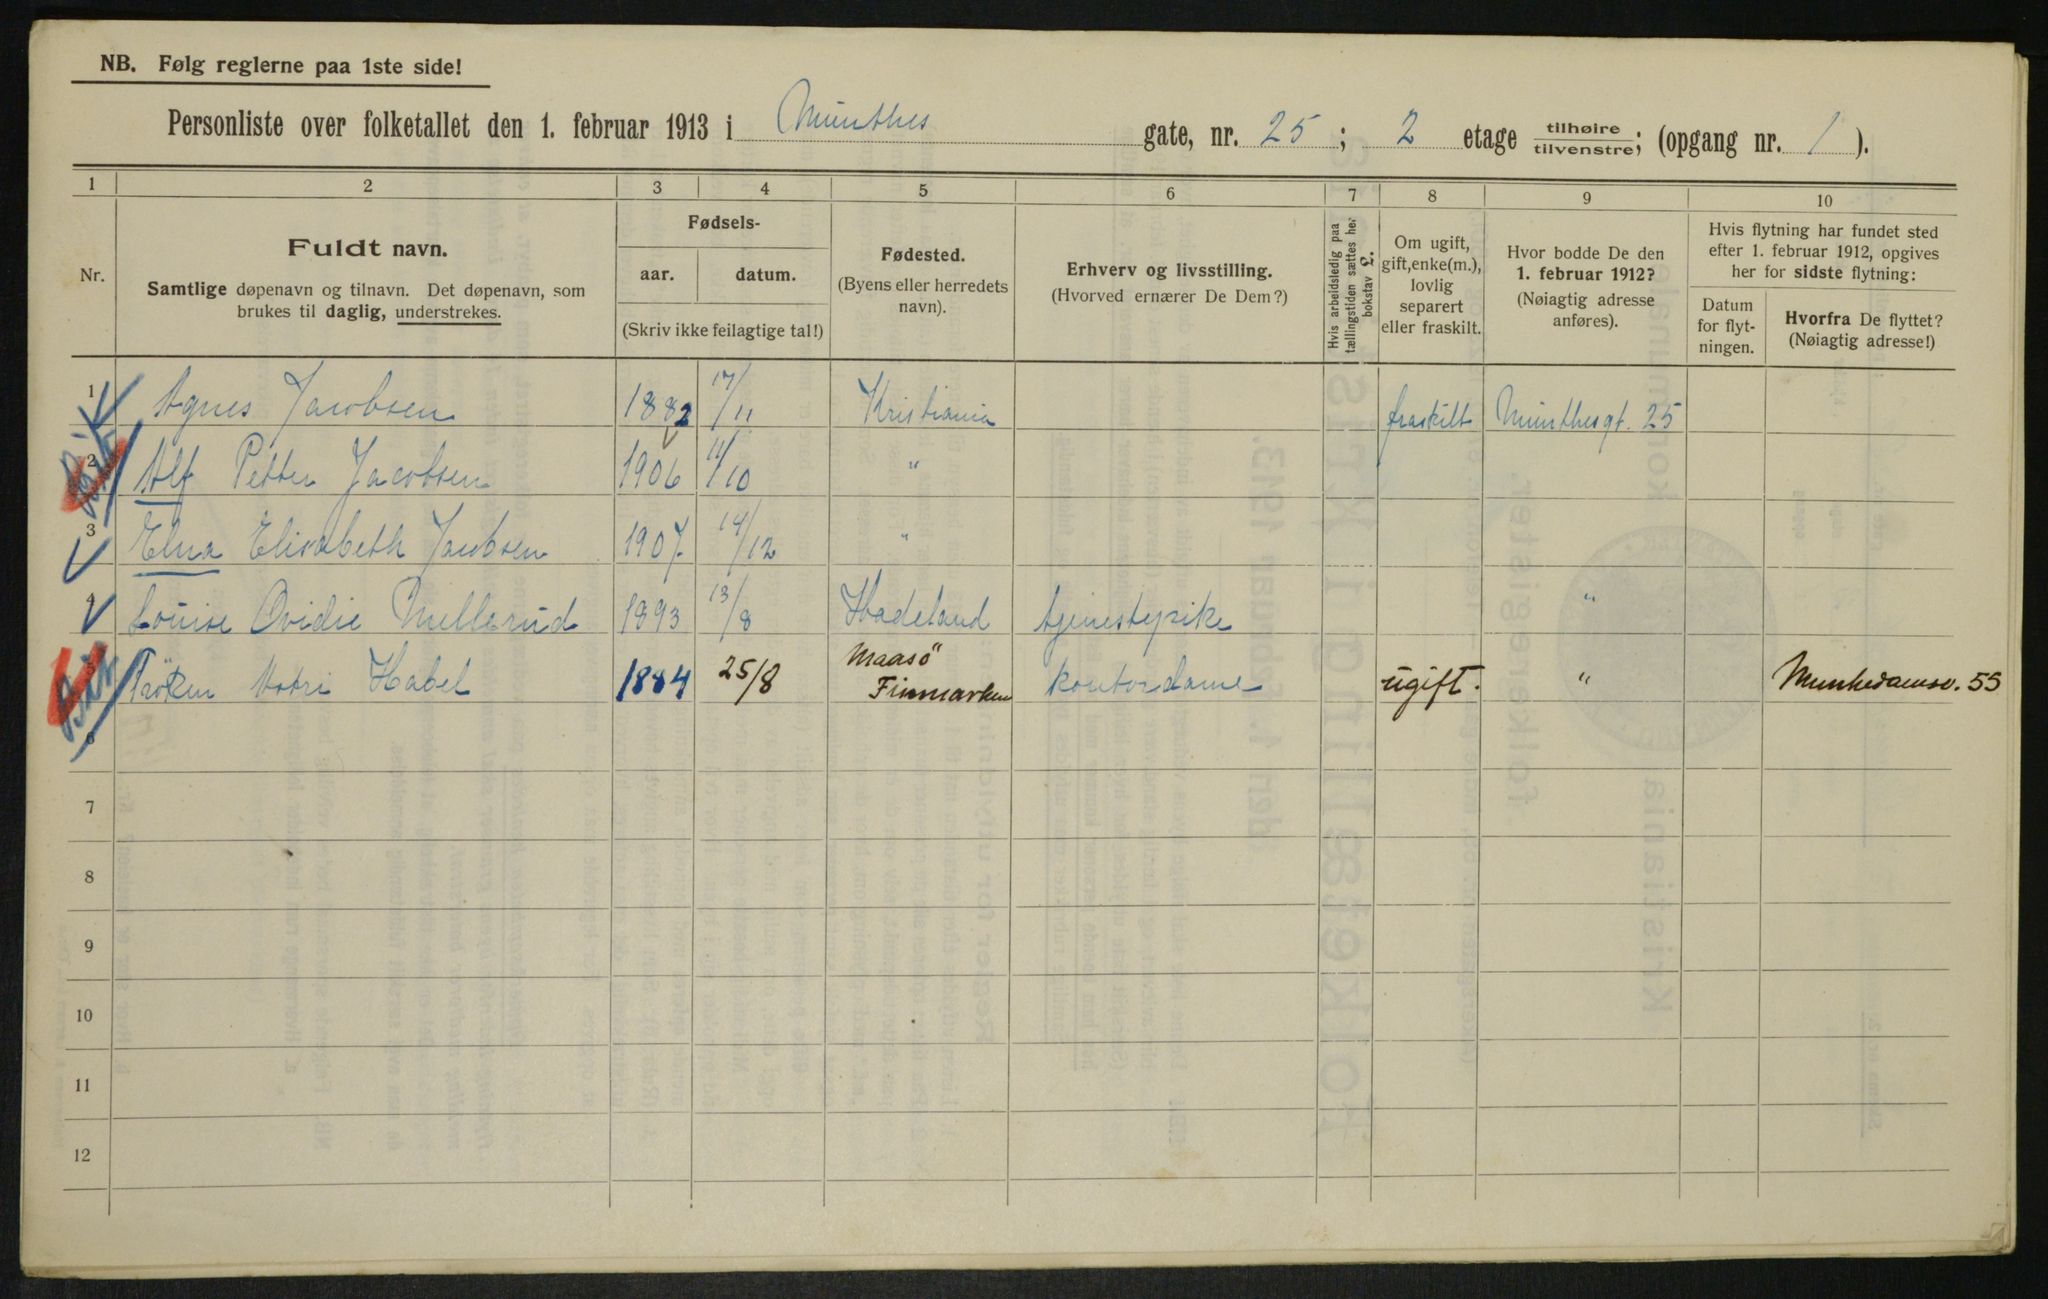 NB. Følg reglerne paa 1ste side!
Personliste over folketallet den 1. februar 1913 i Munthes gate, nr. 25; 2 etage tilhøire/tilvenstre; (opgang nr. 1).
1 2 3 4 5 6 7 8 9 10
Nr.
Fuldt navn.
Samtlige døpenavn og tilnavn. Det døpenavn, som
brukes til daglig, understrekes.
Fødsels-
aar. datum.
(Skriv ikke feilagtige tal!)
Fødested.
(Byens eller herredets
navn).
Erhverv og livsstilling.
(Hvorved ernærer De Dem?)
Hvis arbeidsledig paa
tællingstiden sættes her
bokstav L.
Om ugift,
gift, enke(m.),
lovlig
separert
eller fraskilt.
Hvor bodde De den
1. februar 1912?
(Nøiagtig adresse
anføres).
Hvis flytning har fundet sted
efter 1. februar 1912, opgives
her for sidste flytning:
Datum
for flyt-
ningen.
Hvorfra De flyttet?
(Nøiagtig adresse!)
1 Agnes Jacobsen 1882 17/11 Kristiania fraskilt Munthesgt. 25
2 Alf Petter Jacobsen 1906 11/10 "
3 Elna Elisabeth Jacobsen 1907. 14/12 "
4 Louise Ovidie Mellerud 1893 13/8 Hadeland tjenestepike "
5 Frøken Habel 1884 25/8 Maasö Finmarken kontordame ugift. " Munkedamsv. 55
6
7
8
9
10
11
12